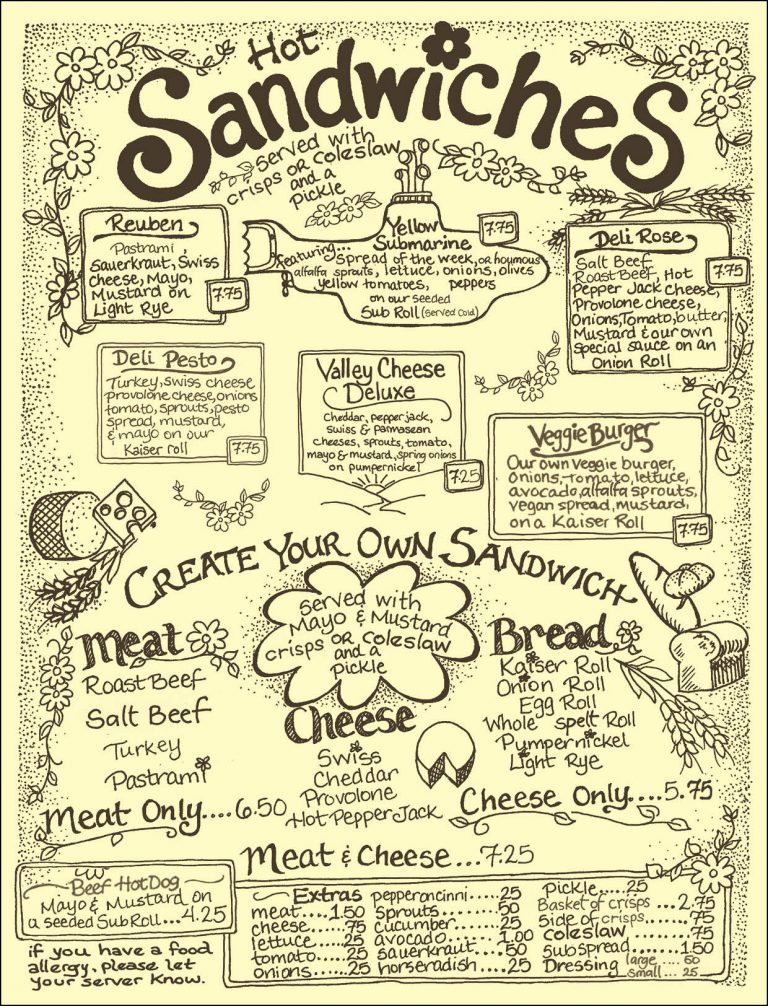 Hot
Sandwiches
Served with
crisps OR Coleslaw
and a
Pickle
Reuben
Pastrami,
Sauerkraut, Swiss
cheese, Mayo,
Mustard on
Light Rye
7.75
Yellow
Submarine
7.75
featuring... Spread of the week, or houmous
alfalfa sprouts, lettuce, onions, olives
yellow tomatoes, peppers
on our seeded
Sub Roll (Served Cold)
Deli Rose
Salt Beef
Roast Beef, Hot
Pepper Jack cheese,
Provolone cheese,
Onions, Tomato, butter,
Mustard & our own
special sauce on an
Onion Roll
7.75
Deli Pesto
Turkey, Swiss cheese
Provolone cheese, onions
tomato, sprouts, pesto
spread, mustard,
& mayo on our
Kaiser roll
7.75
Valley Cheese
Deluxe
Cheddar, pepper jack,
swiss & parmasean
cheeses, sprouts, tomato,
mayo & mustard, spring onions
on pumpernickel
7.25
Veggie Burger
Our own veggie burger,
onions, tomato, lettuce,
avocado, alfalfa sprouts,
vegan spread, mustard,
on a Kaiser Roll
7.75
CREATE YOUR OWN SANDWICH
Served with
Mayo & Mustard
crisps OR Coleslaw
and a
Pickle
Meat
Roast Beef
Salt Beef
Turkey
Pastrami
Meat Only....6.50
Cheese
Swiss
Cheddar
Provolone
Hot Pepper Jack
Bread
Kaiser Roll
Onion Roll
Egg Roll
Whole spelt Roll
Pumpernickel
Light Rye
Cheese Only....5.75
Meat & Cheese...7.25
Beef Hot Dog
Mayo & Mustard on
a seeded Sub Roll...4.25
if you have a food
allergy, please let
your server know.
Extras
meat....1.50
cheese.....75
lettuce....25
tomato....25
onions....25
pepperoncinni.....25
Sprouts.......50
cucumber.....25
avocado.....1.00
sauerkraut....50
horseradish....25
Pickle.....25
Basket of crisps ...2.75
side of crisps.....75
coleslaw......75
sub spread....1.50
Dressing large .. 50
small ... 25